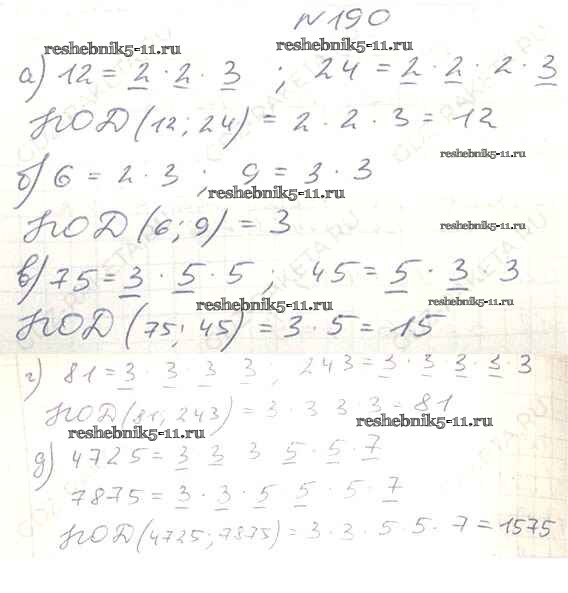 №190
reshebnik5-11.ru
а) 12 = 2 · 2 · 3 ; 24 = 2 · 2 · 2 · 3
НОД (12; 24) = 2 · 2 · 3 = 12
reshebnik5-11.ru
б) 6 = 2 · 3 ; 9 = 3 · 3
reshebnik5-11.ru
НОД (6; 9) = 3
reshebnik5-11.ru
в) 75 = 3 · 5 · 5 ; 45 = 5 · 3 · 3
reshebnik5-11.ru reshebnik5-11.ru
НОД (75; 45) = 3 · 5 = 15
г) 81 = 3 · 3 · 3 · 3 ; 243 = 3 · 3 · 3 · 3 · 3
НОД (81; 243) = 3 · 3 · 3 · 3 = 81
reshebnik5-11.ru reshebnik5-11.ru
д) 4725 = 3 3 3 5 · 5 · 7
7875 = 3 · 3 · 5 5 · 5 · 7
НОД (4725; 7875) = 3 · 3 · 5 · 5 · 7 = 1575